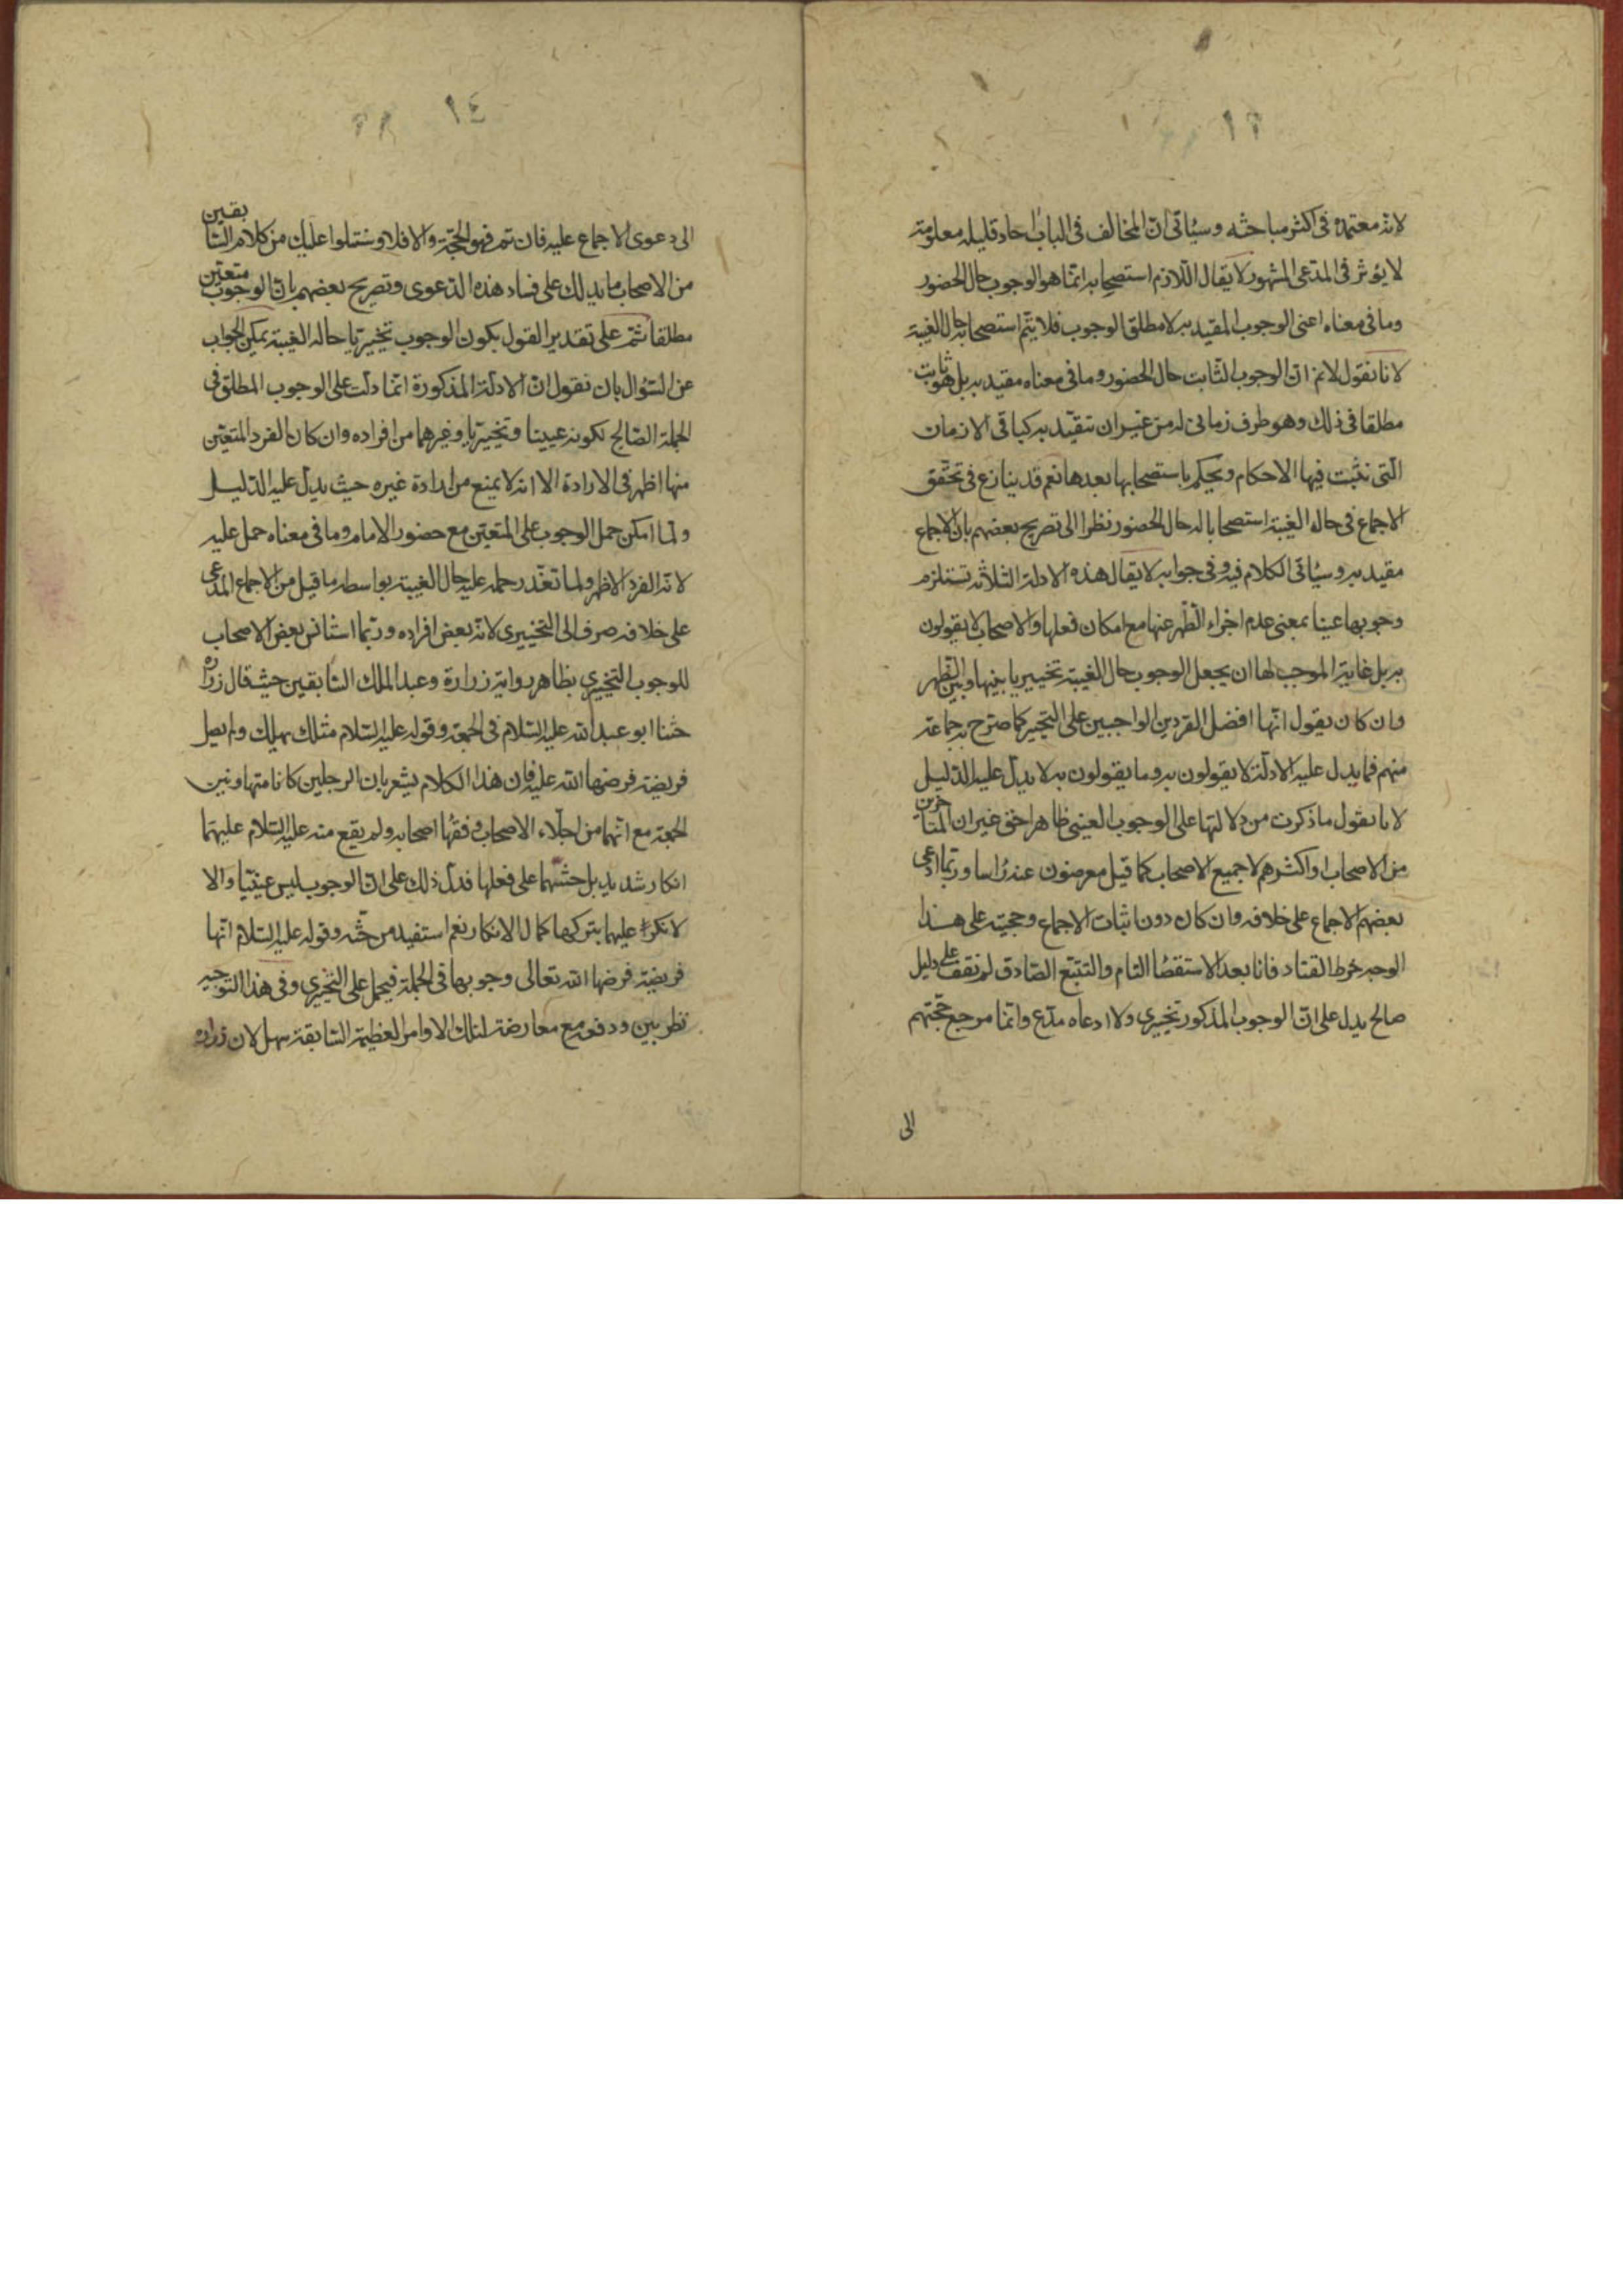 ١٣
لانه معتمده فى اكثر مباحثه وسيأتى ان المخالف فى الباب احاد قليله معلومة
لا يؤثر فى المدعى المشهور لا يقال اللازم استصحابه انما هو الوجوب حال الحضور
وما فى معناه اعنى الوجوب المقيد به لا مطلق الوجوب فلا يتم استصحابه حال الغيبة
لانا نقول لانم ان الوجوب الثابت حال الحضور وما فى معناه مقيد به بل هو ثابت
مطلقا فى ذلك وهو ظرف زمانى له من غير ان تتقيد به كباقى الازمان
التى تثبت فيها الاحكام ويحكم باستصحابها بعدها نعم قد ينازع فى تحقق
الاجماع فى حاله الغيبة استصحابا له حال الحضور نظرا الى تصريح بعضهم بان الاجماع
مقيد به وسيأتى الكلام فيه وفى جوابه لا يقال هذه الادلة الثلاثه تستلزم
وجوبها عينا بمعنى عدم اجزاء الظهر عنها مع امكان فعلها والاصحاب لا يقولون
به بل غاية الموجب لها ان يجعل الوجوب حال الغيبة تخييريا بينها وبين الظهر
وان كان يقول انها افضل الفردين الواجبين على التخيير كما صرح به جماعة
منهم فما يدل عليه الادلة لا يقولون به وما يقولون به لا يدل عليه الدليل
لانا نقول ما ذكرت من دلالتها على الوجوب العينى ظاهرا حق غير ان المتأخرين
من الاصحاب او اكثرهم لا جميع الاصحاب كما قيل معرضون عنه رأسا وربما ادعى
بعضهم الاجماع على خلافه وان كان دون اثبات الاجماع وحجيته على هذا
الوجه خرط القتاد فانا بعد الاستقصاء التام والتتبع الصادق لم نقف على دليل
صالح يدل على ان الوجوب المذكور تخييرى ولا ادعاه مدع وانما مرجع حجتهم
الى
١٤
الى دعوى الاجماع عليه فان تم فهو الحجة والا فلا وسنتلوا عليك من كلام السابقين
من الاصحاب ما يدلك على فساد هذه الدعوى وتصريح بعضهم بان الوجوب متعين
مطلقا ثم على تقدير القول بكون الوجوب تخييريا حاله الغيبة يمكن الجواب
عن السؤال بان نقول ان الادلة المذكورة انما دلت على الوجوب المطلق فى
الجملة الصالح لكونه عينيا وتخييريا وغيرهما من افراده وان كان الفرد المتعين
منها اظهر فى الارادة الا انه لا يمنع من ارادة غيره حيث يدل عليه الدليل
ولما امكن حمل الوجوب على المتعين مع حضور الامام وما فى معناه حمل عليه
لانه الفرد الاظهر ولما تعذر حمله عليه حال الغيبة بواسطه ما قيل من الاجماع المدعى
على خلافه صرف الى التخييرى لانه بعض افراده وربما استأنس بعض الاصحاب
للوجوب التخييرى بظاهر رواية زرارة وعبد الملك السابقين حيث قال زراره
حثنا ابو عبد الله عليه السلام فى الجمعة وقوله عليه السلام مثلك يهلك ولم يصل
فريضة فرضها الله عليه فان هذا الكلام يشعر بان الرجلين كانا متهاونين
الجمعة مع انهما من اجلاء الاصحاب وفقهاء اصحابه ولم يقع منه عليه السلام عليهما
انكار شديد بل حثهما على فعلها فدل ذلك على ان الوجوب ليس عينيا والا
لانكر عليهما بتركها كمال الانكار نعم استفيد من حثه وقوله عليه السلام انها
فريضة فرضها الله تعالى وجوبها فى الجملة فيحمل على التخييرى وفى هذا التوجيه
نظر بين ودفعه مع معارضة لتلك الاوامر العظيمة السابقة سهل لان زراره